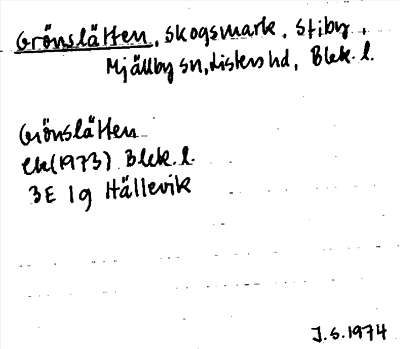 Grönslätten, skogsmark, Stiby,
Mjällby sn, Listers hd, Blek. l.
Grönslätten
Ek(1973) Blek. l.
3E 1g Hällevik
J.S. 1974